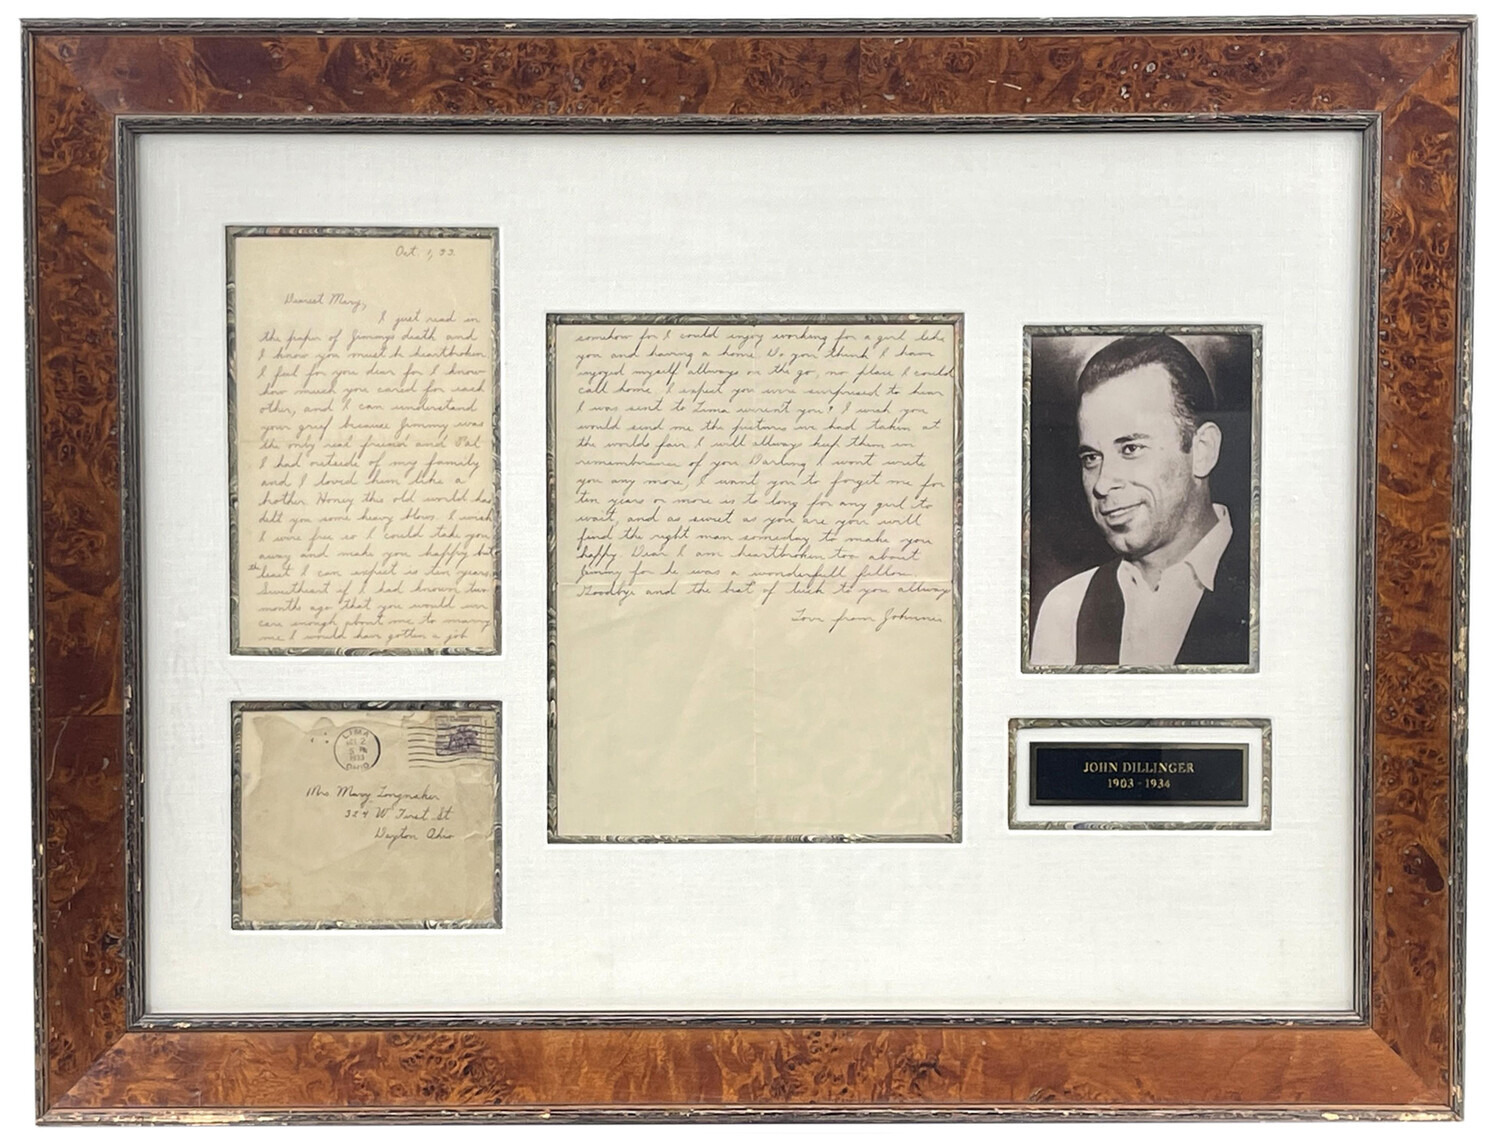 Oct. 1, 33
Dearest Mary,
I just read in
the paper of Jimmys death and
I know you must be heartbroken
I feel for you dear for I know
how much you cared for each
other, and I can understand
your grief because Jimmy was
the only real friend and Pal
I had outside of my family
and I loved him like a
brother. Honey the old world has
delt you some heavy blows. I wish
I were free so I could take you
away and make you happy but
the least I can expect is ten years.
Sweetheart if I had known two
months ago that you would
care enough about me to marry
me I would have gotten a job
somehow for I could enjoy working for a girl like
you and having a home. Do you think I have
enjoyed myself allways on the go, no place I could
call home. I expect you were surprised to hear
I was sent to Lima werent you? I wish you
would send me the pictures we had taken at
the worlds fair I will allways keep them in
remembrance of you Darling I wont write
you any more, I want you to forget me for
ten years or more is to long for any girl to
wait, and as sweet as you are you will
find the right man someday to make you
happy. Dear I am heartbroken too about
Jimmy for he was a wonderfull fellow.
Goodbye and the best of luck to you allways
Love from Johnnie
LIMA
2
5 PM
1933
OHIO
Mrs. Mary Longnaker
324 W First St
Dayton Ohio
JOHN DILLINGER
1903 - 1934